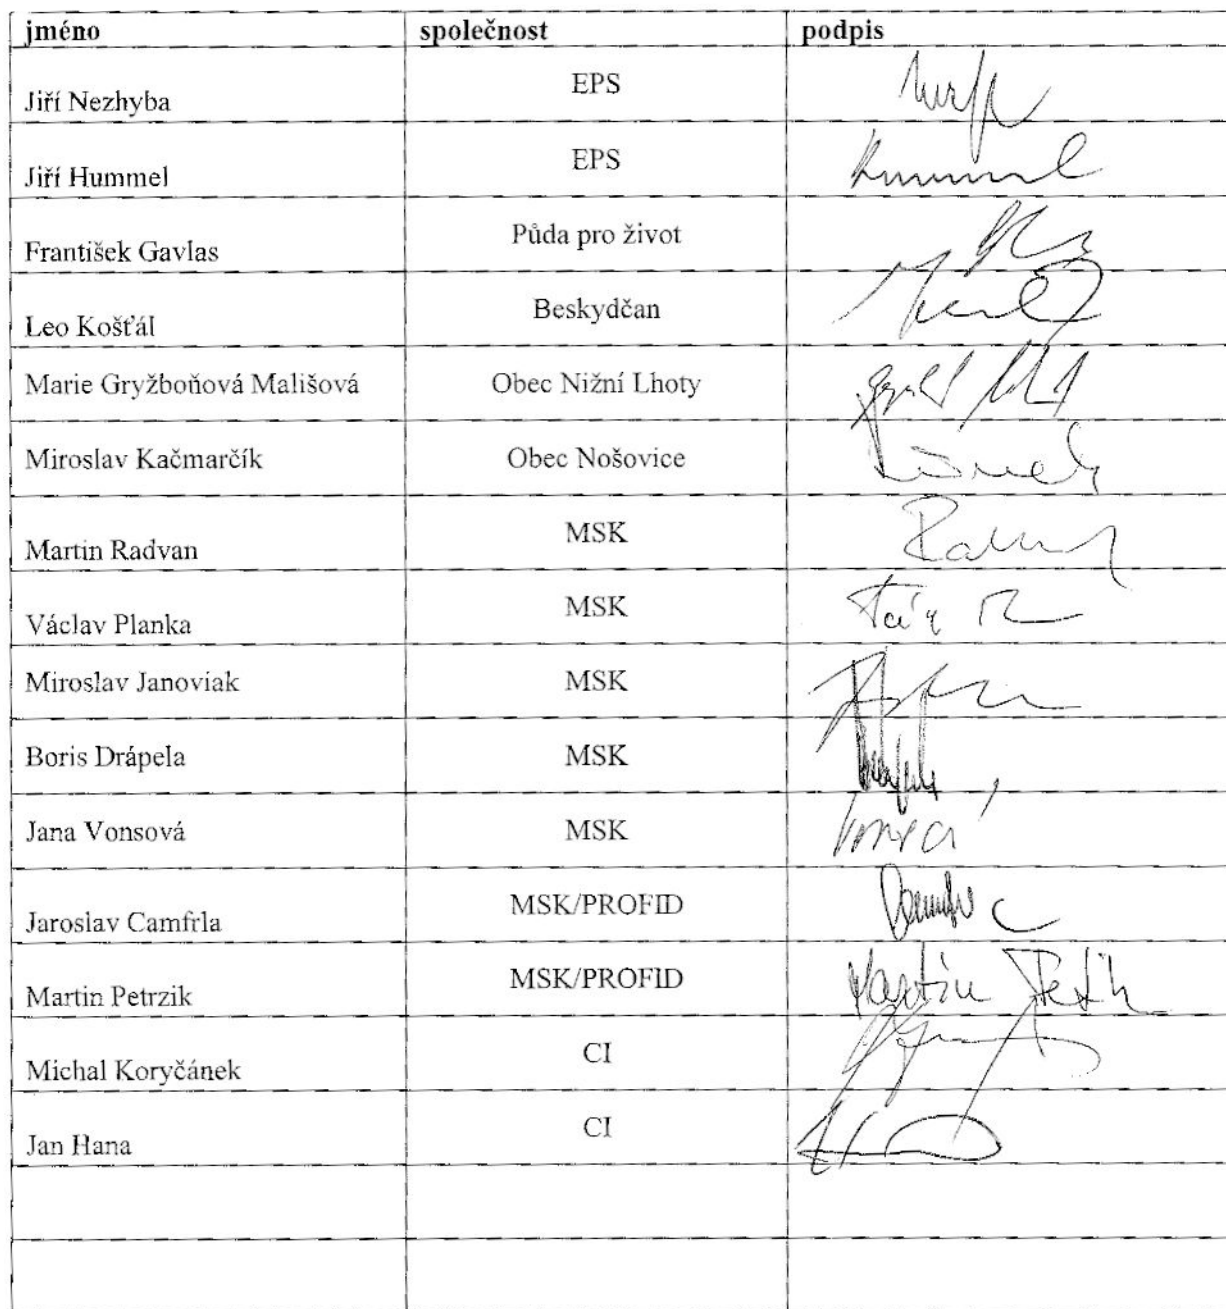 jméno společnost podpis
Jiří Nezhyba EPS
Jiří Hummel EPS Hummel
František Gavlas Půda pro život
Leo Košťál Beskydčan
Marie Gryžboňová Mališová Obec Nižní Lhoty
Miroslav Kačmarčík Obec Nošovice
Martin Radvan MSK
Václav Planka MSK
Miroslav Janoviak MSK
Boris Drápela MSK
Jana Vonsová MSK
Jaroslav Camfrla MSK/PROFID
Martin Petrzik MSK/PROFID Martin
Michal Koryčánek CI
Jan Hana CI